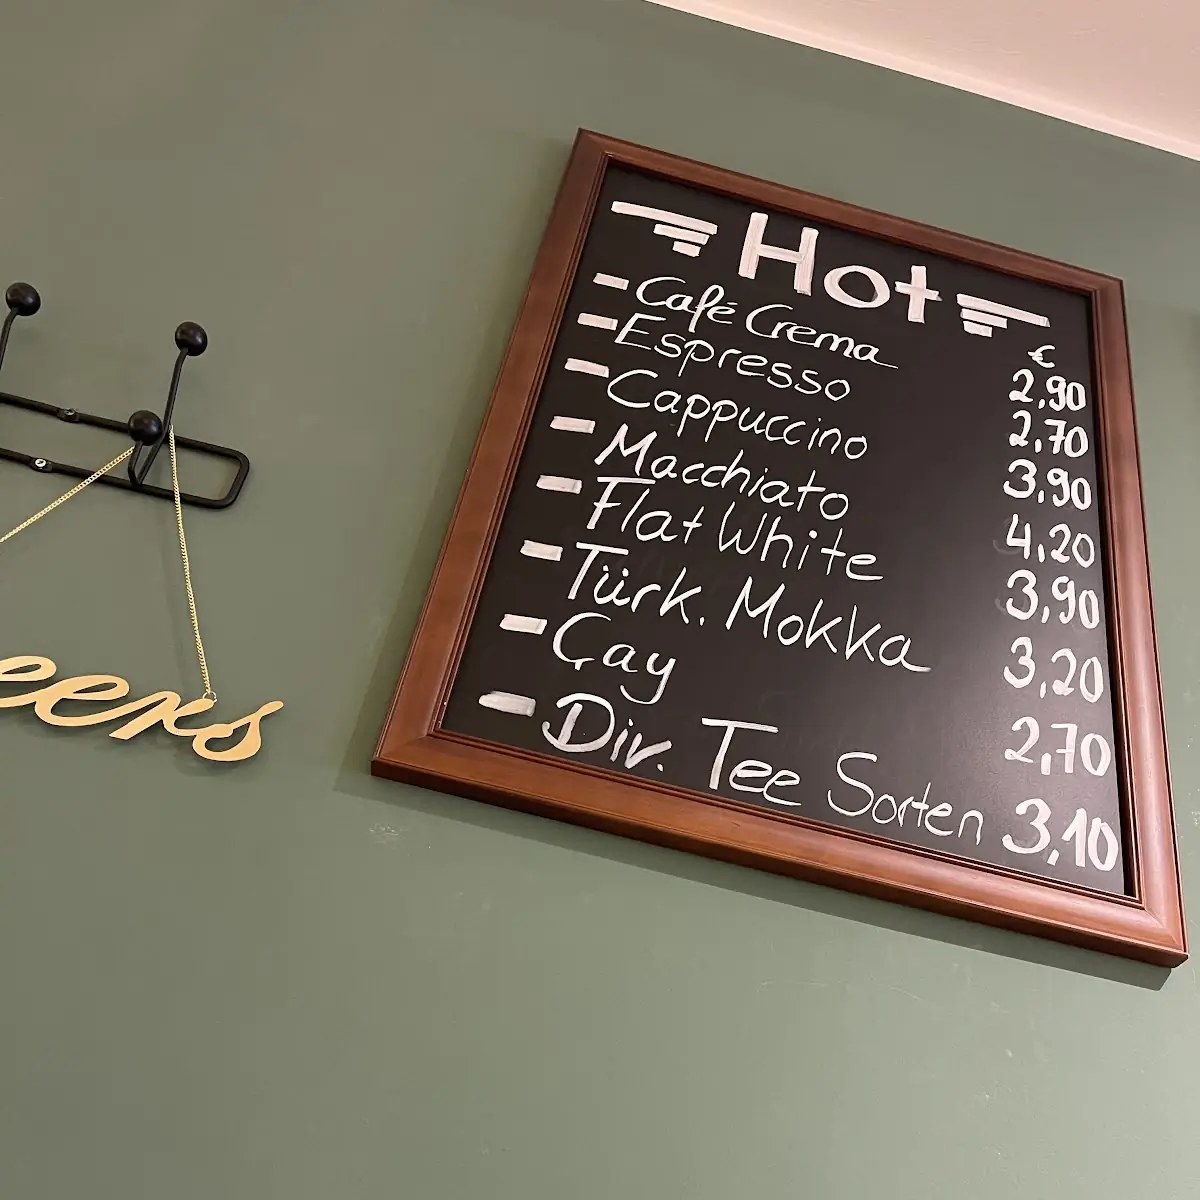 Hot
€
Café Crema 2,90
Espresso 2,70
Cappuccino 3,90
Macchiato 4,20
Flat White 3,90
Türk. Mokka 3,20
Çay 2,70
Div. Tee Sorten 3,10
eers